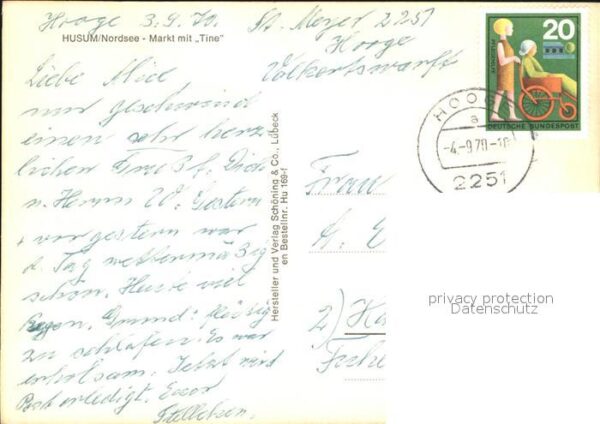 Hooge 3.9.70 St. Meyer 2251
Hooge
Volkertswarft
HUSUM/Nordsee - Markt mit „Tine"
Liebe Alice
nur geschwind
einen sehr herz-
lichen Gruß f. Dich
u. Herrn W. Gestern
+ vorgestern war
d. Tag wettermäßig
schön. Heute viel
Regen. Grund: fleißig
zu schlafen. Es war
erholsam. Jetzt wird
Post erledigt. Euer
Hersteller und Verlag Schöning & Co., Lübeck
en Bestellnr. Hu 169-f
20
DEUTSCHE BUNDESPOST
HOOGE
a
-4.-9.70-18
2251
Frau
2) Ha
privacy protection
Datenschutz